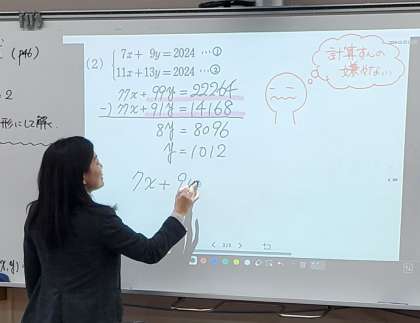 (p46)
= 2
形にして解く.
(2)
7x + 9y = 2024 … ①
11x + 13y = 2024 … ②
77x + 99y = 22264
-) 77x + 91y = 14168
8y = 8096
y = 1012
7x + 9y
計算すんの
嫌やな…